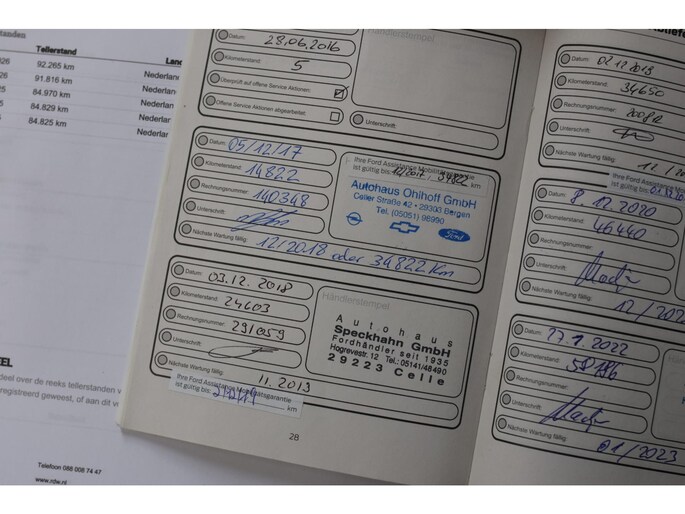 standen
Tellerstand
Lan
26 92.265 km Nederland
26 91.816 km Nederland
5 84.970 km Nederland
84.829 km Nederland
84.825 km Nederlan
EL
deel over de reeks tellerstanden v
registreerd geweest, of aan dit w
Telefoon 088 008 74 47
www.rdw.nl
Datum: 28.06.2016
Kilometerstand: 5
Überprüft auf offene Service Aktionen:
Offene Service Aktionen abgearbeitet:
Händlerstempel
Unterschrift:
Datum: 05/12/17
Kilometerstand: 14822
Rechnungsnummer: 140348
Unterschrift:
Nächste Wartung fällig: 12/2018 oder 34822 Km
Ihre Ford Assistance Mobilitätsgarantie
ist gültig bis: 34822 km
Autohaus Ohlhoff GmbH
Celler Straße 42 • 29303 Bergen
Tel. (05051) 98990
Ford
Datum: 03.12.2018
Kilometerstand: 24603
Rechnungsnummer: 291059
Unterschrift:
Nächste Wartung fällig: 11.2019
Händlerstempel
Autohaus
Speckhahn GmbH
Fordhändler seit 1935
Hogrevestr. 12 Tel.: 05141/48490
29223 Celle
Ihre Ford Assistance Mobilitätsgarantie
ist gültig bis: km
28
Datum: 02.12.2019
Kilometerstand: 34650
Rechnungsnummer:
Unterschrift:
Nächste Wartung fällig:
Datum: 8.12.2020
Kilometerstand: 46440
Rechnungsnummer:
Unterschrift:
Nächste Wartung fällig: 12/2022
Datum: 27.1.2022
Kilometerstand: 58186
Rechnungsnummer:
Unterschrift:
Nächste Wartung fällig: 01/2023